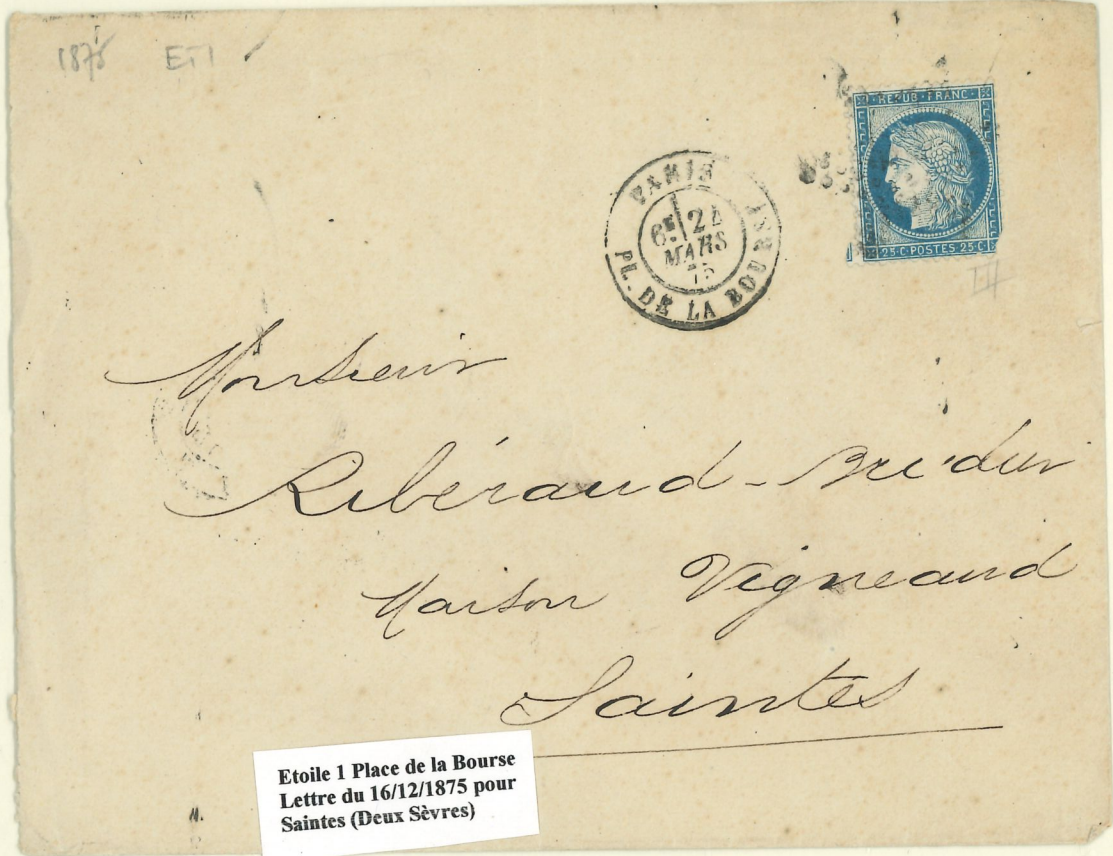 1875 ET1
REPUB·FRANC·
25·C·POSTES 25·C·
PARIS
6E 24
MARS
75
PL. DE LA BOURSE
III
Monsieur
Ribéraud-
Maison Vigneaud
Saintes
Etoile 1 Place de la Bourse
Lettre du 16/12/1875 pour
Saintes (Deux Sèvres)